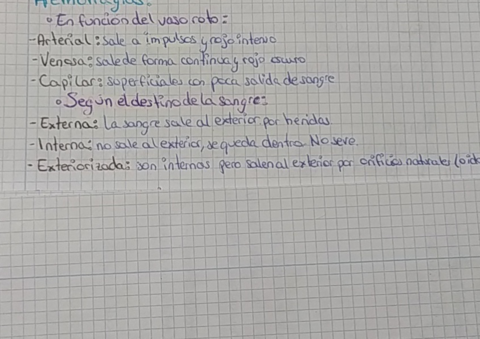 Hemorragias:
◦ En función del vaso roto:
- Arterial: sale a impulsos y rojo intenso
- Venosa: sale de forma continua y rojo oscuro
- Capilar: superficiales con poca salida de sangre
◦ Según el destino de la sangre:
- Externa: la sangre sale al exterior por heridas
- Interna: no sale al exterior, se queda dentro. No se ve.
- Exteriorizada: son internas pero salen al exterior por orificios naturales (oíd